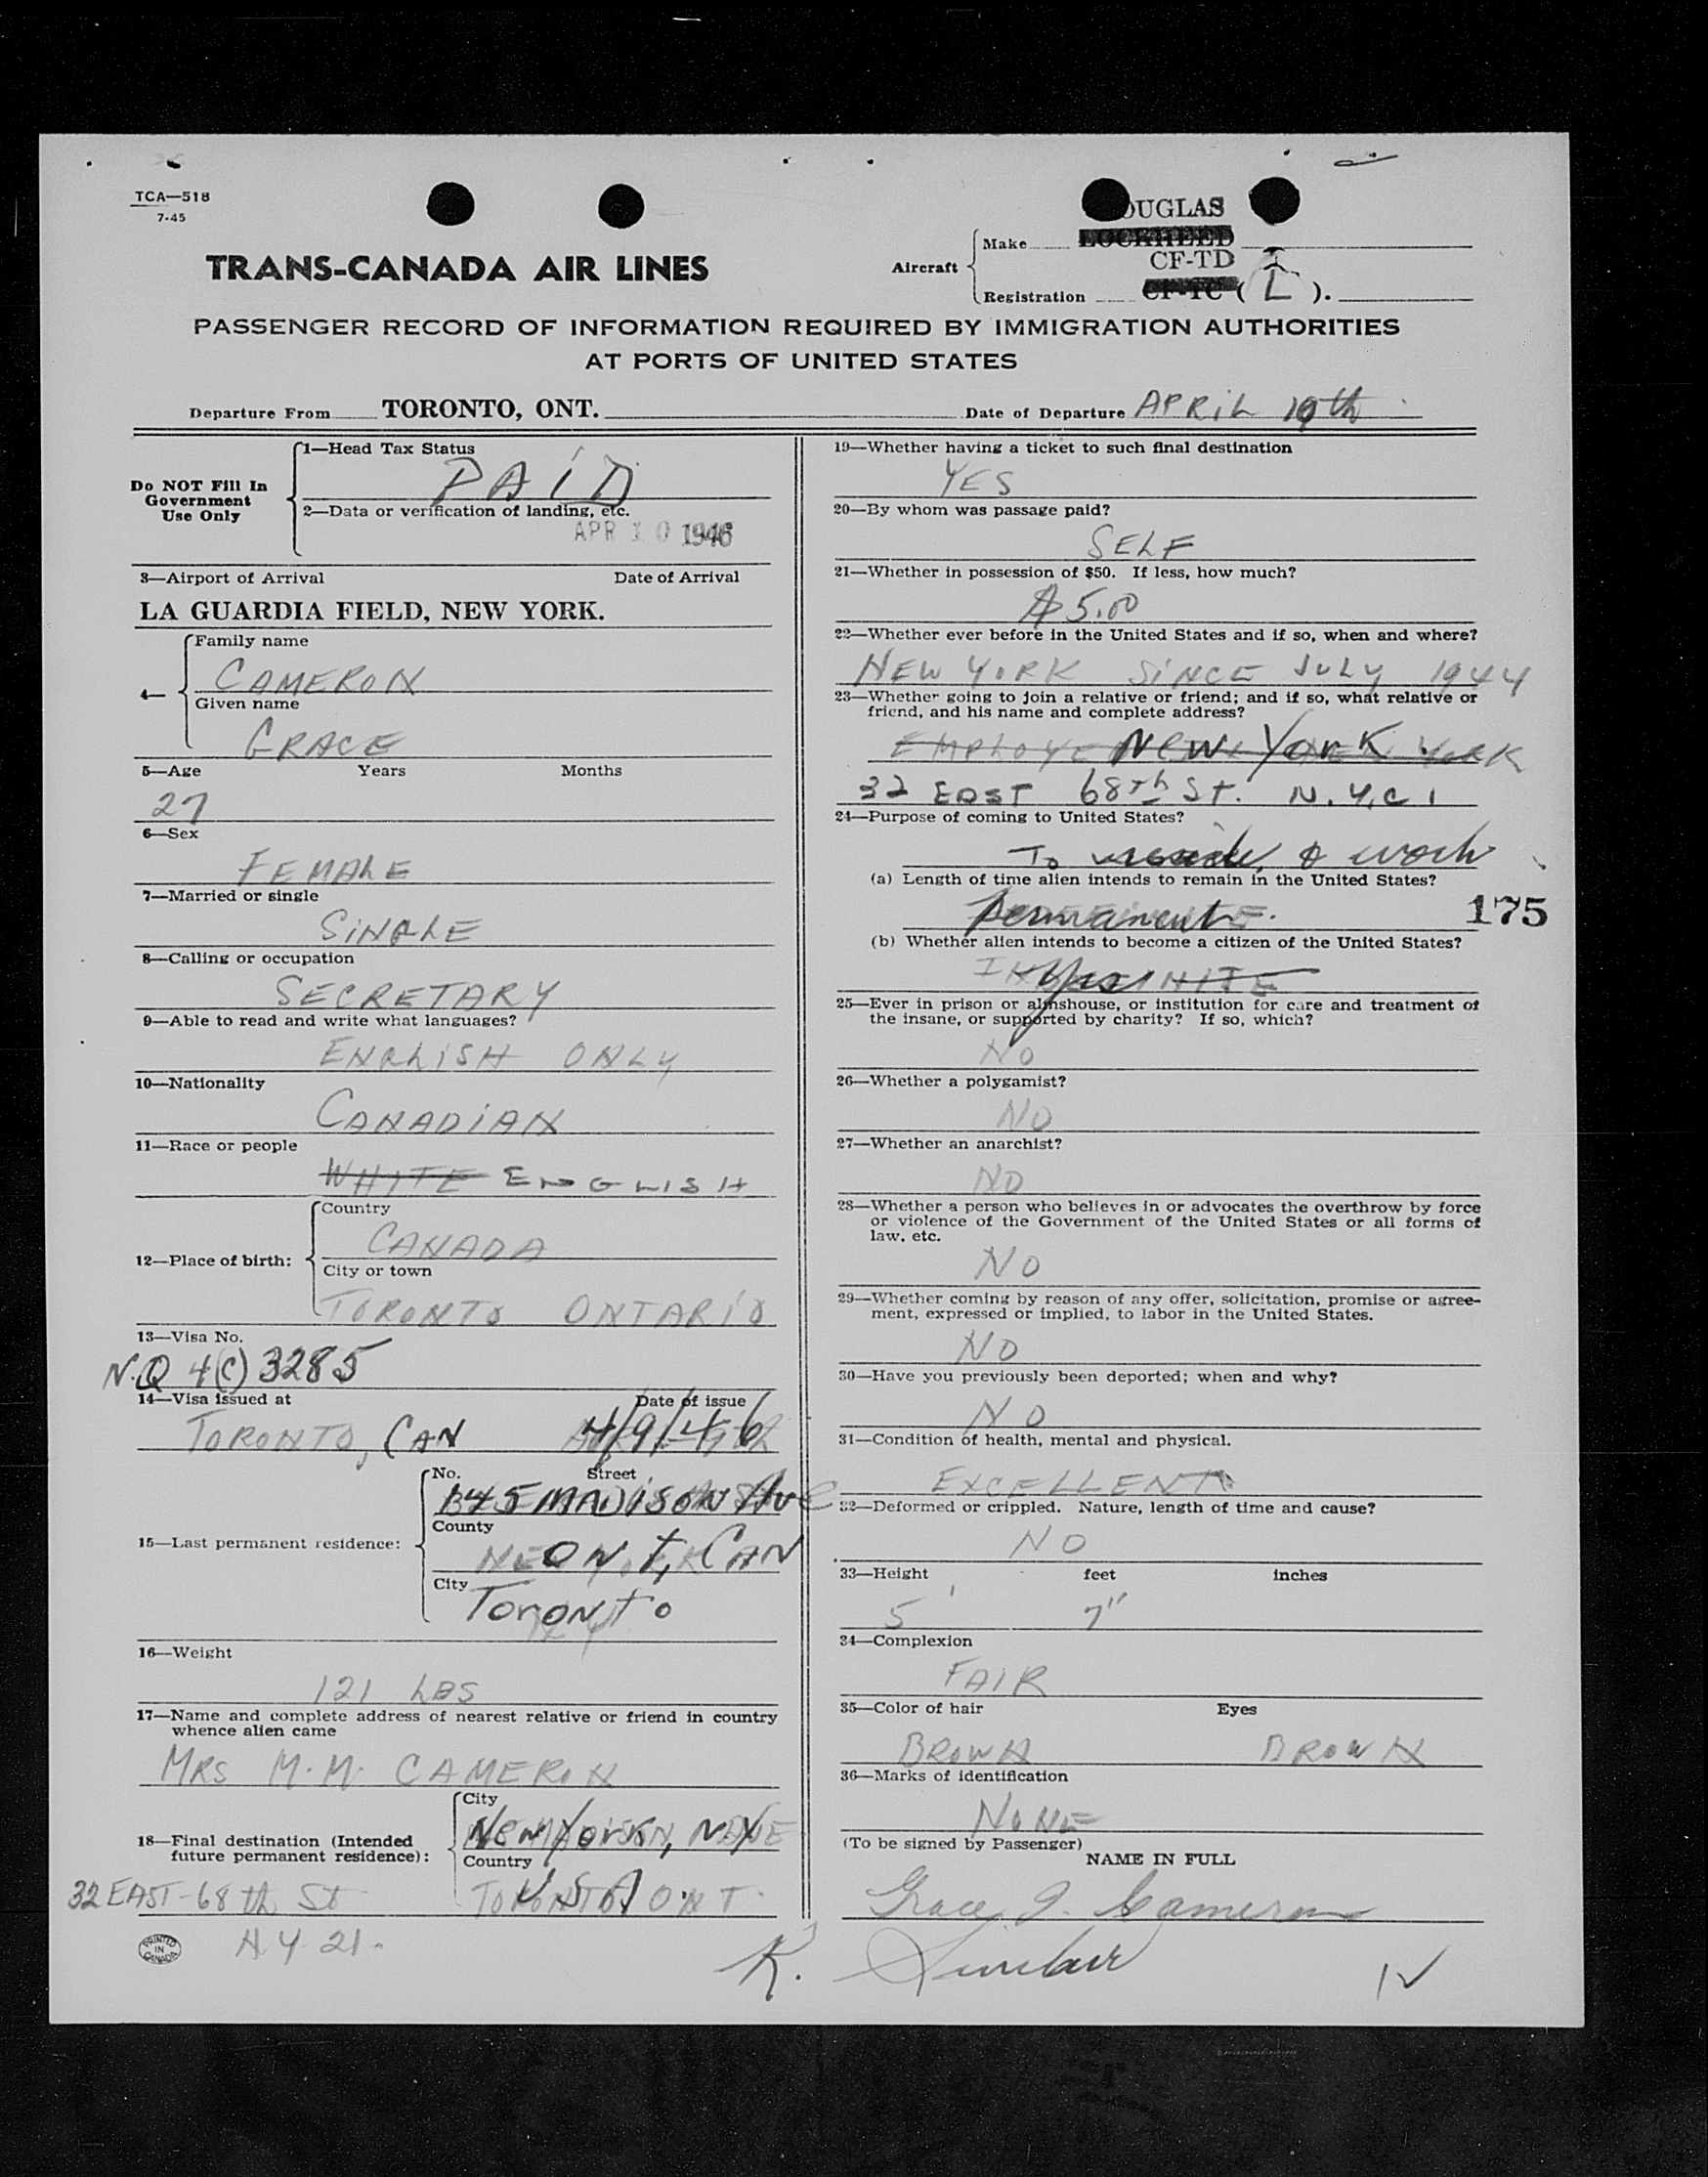 TCA—518
7-45
TRANS-CANADA AIR LINES
Aircraft
Make
DOUGLAS
LOCKHEED
CF-TD
Registration CF-TC ( L ).
PASSENGER RECORD OF INFORMATION REQUIRED BY IMMIGRATION AUTHORITIES
AT PORTS OF UNITED STATES
Departure From TORONTO, ONT. Date of Departure APRIL 10th
Do NOT Fill In
Government
Use Only
1—Head Tax Status
PAID
2—Data or verification of landing, etc.
APR 10 1946
3—Airport of Arrival Date of Arrival
LA GUARDIA FIELD, NEW YORK.
4—
Family name
CAMERON
Given name
GRACE
5—Age Years Months
27
6—Sex
FEMALE
7—Married or single
SINGLE
8—Calling or occupation
SECRETARY
9—Able to read and write what languages?
ENGLISH ONLY
10—Nationality
CANADIAN
11—Race or people
WHITE ENGLISH
12—Place of birth:
Country
CANADA
City or town
TORONTO ONTARIO
13—Visa No.
N.Q 4(C) 3285
14—Visa issued at Date of issue
TORONTO, CAN 4/9/46
15—Last permanent residence:
No. Street
345 MADISON Ave
County
ONT, CAN
City
Toronto
16—Weight
121 LBS
17—Name and complete address of nearest relative or friend in country
whence alien came
MRS M. M. CAMERON
18—Final destination (Intended
future permanent residence):
City
New York, N.Y
Country
USA
TORONTO ONT.
32 EAST - 68th St
N Y 21.
PRINTED
IN
CANADA
19—Whether having a ticket to such final destination
YES
20—By whom was passage paid?
SELF
21—Whether in possession of $50. If less, how much?
$5.00
22—Whether ever before in the United States and if so, when and where?
NEW YORK SINCE JULY 1944
23—Whether going to join a relative or friend; and if so, what relative or
friend, and his name and complete address?
New York YORK
32 EAST 68th St. N.Y.C.
24—Purpose of coming to United States?
To reside & work
(a) Length of time alien intends to remain in the United States?
permanent.
175
(b) Whether alien intends to become a citizen of the United States?
Yes
25—Ever in prison or almshouse, or institution for care and treatment of
the insane, or supported by charity? If so, which?
NO
26—Whether a polygamist?
NO
27—Whether an anarchist?
NO
28—Whether a person who believes in or advocates the overthrow by force
or violence of the Government of the United States or all forms of
law, etc.
NO
29—Whether coming by reason of any offer, solicitation, promise or agree-
ment, expressed or implied, to labor in the United States.
NO
30—Have you previously been deported; when and why?
NO
31—Condition of health, mental and physical.
EXCELLENT
32—Deformed or crippled. Nature, length of time and cause?
NO
33—Height feet inches
5' 7"
34—Complexion
FAIR
35—Color of hair Eyes
BROWN BROWN
36—Marks of identification
NONE
(To be signed by Passenger)
NAME IN FULL
Grace J. Cameron
K. Sinclair